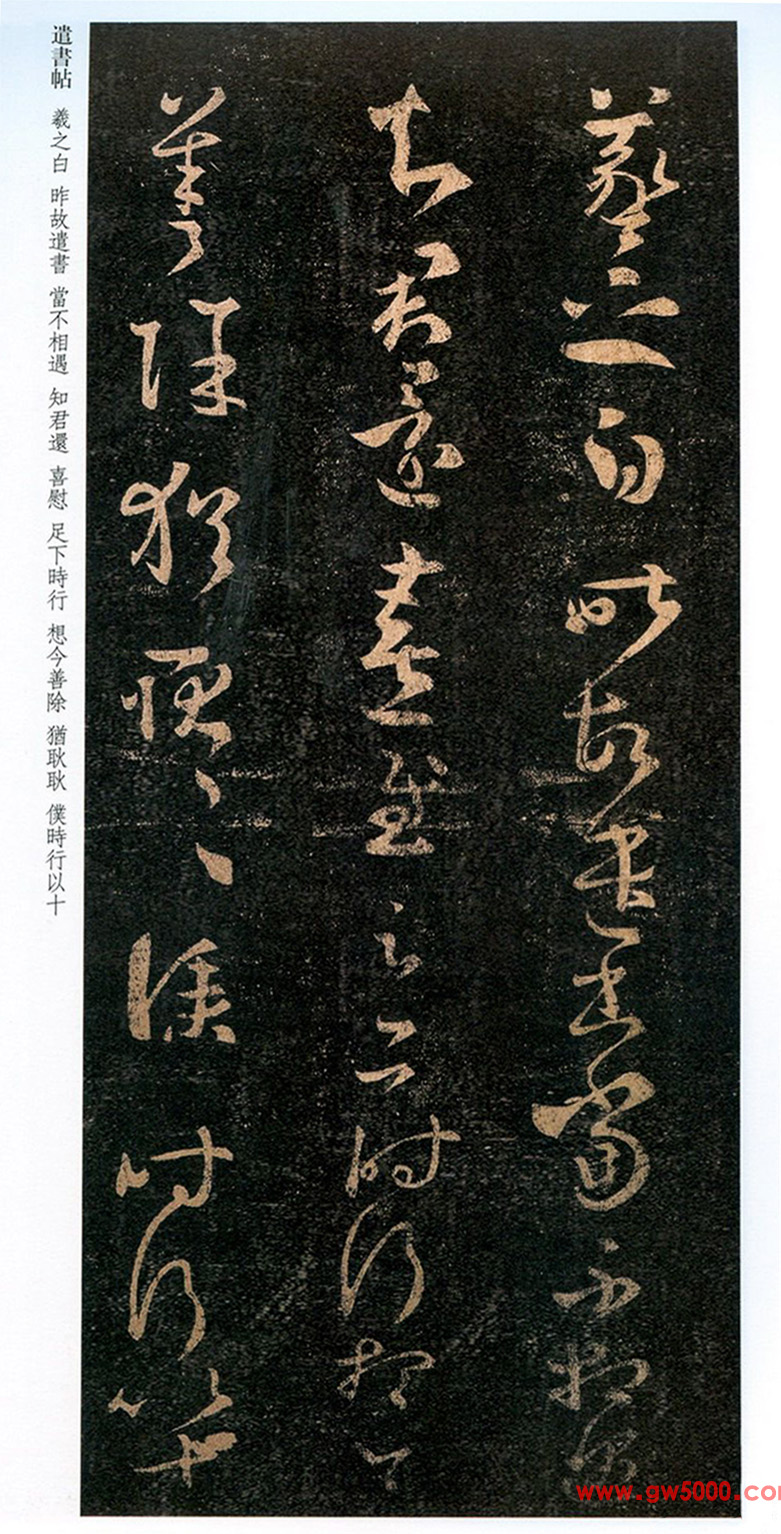 羲之白昨故遣書當不相遇
知君還喜慰足下時行想今
善除猶耿耿僕時行以十
遣書帖 羲之白 昨故遣書 當不相遇 知君還 喜慰 足下時行 想今善除 猶耿耿 僕時行以十
www.gw5000.com